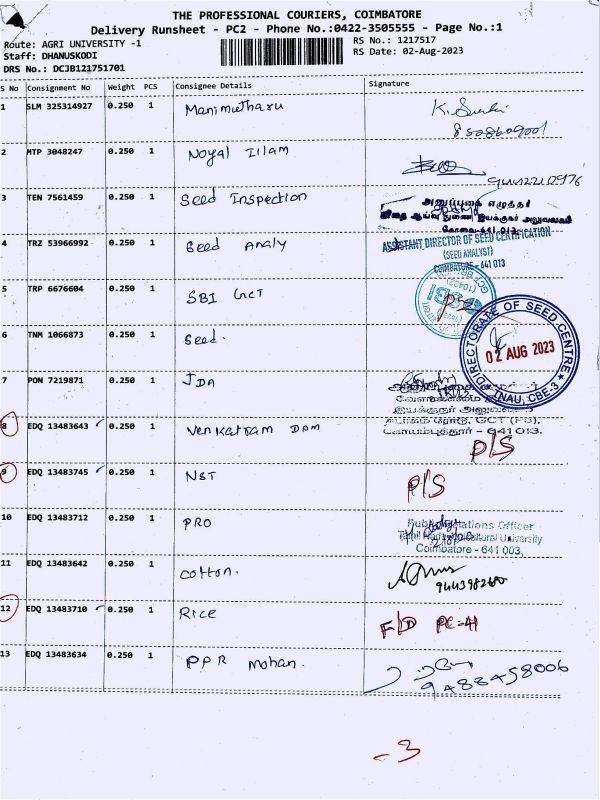 THE PROFESSIONAL COURIERS, COIMBATORE
Delivery Runsheet - PC2 - Phone No.:0422-3505555 - Page No.:1
Route: AGRI UNIVERSITY -1
Staff: DHANUSKODI
DRS No.: DCJB121751701
RS No.: 1217517
RS Date: 02-Aug-2023
S No Consignment No Weight PCS Consignee Details Signature
1 SLM 325314927 0.250 1 Manimutharu
2 MTP 3048247 0.250 1 Noyal Illam
3 TEN 7561459 0.250 1 Seed Inspection
அனுப்புகை எழுத்தர்
4 TRZ 53966992 0.250 1 Seed Analy
ASSISTANT DIRECTOR OF SEED CERTIFICATION
(SEED ANALYST)
COIMBATORE - 641 013
5 TRP 6676604 0.250 1 SBI GCT
SBI
6 TNM 1066873 0.250 1 Seed.
DIRECTORATE OF SEED CENTRE
02 AUG 2023
TNAU, CBE-3
7 PON 7219871 0.250 1 JDA
8 EDQ 13483643 0.250 1 Venkatram DPM
P/S
9 EDQ 13483745 0.250 1 NST P/S
10 EDQ 13483712 0.250 1 PRO
Public Relations Officer
Tamil Nadu Agricultural University
Coimbatore - 641 003.
11 EDQ 13483642 0.250 1 cotton.
12 EDQ 13483710 0.250 1 Rice
13 EDQ 13483634 0.250 1 PPR Mohan.
9488458006
-3